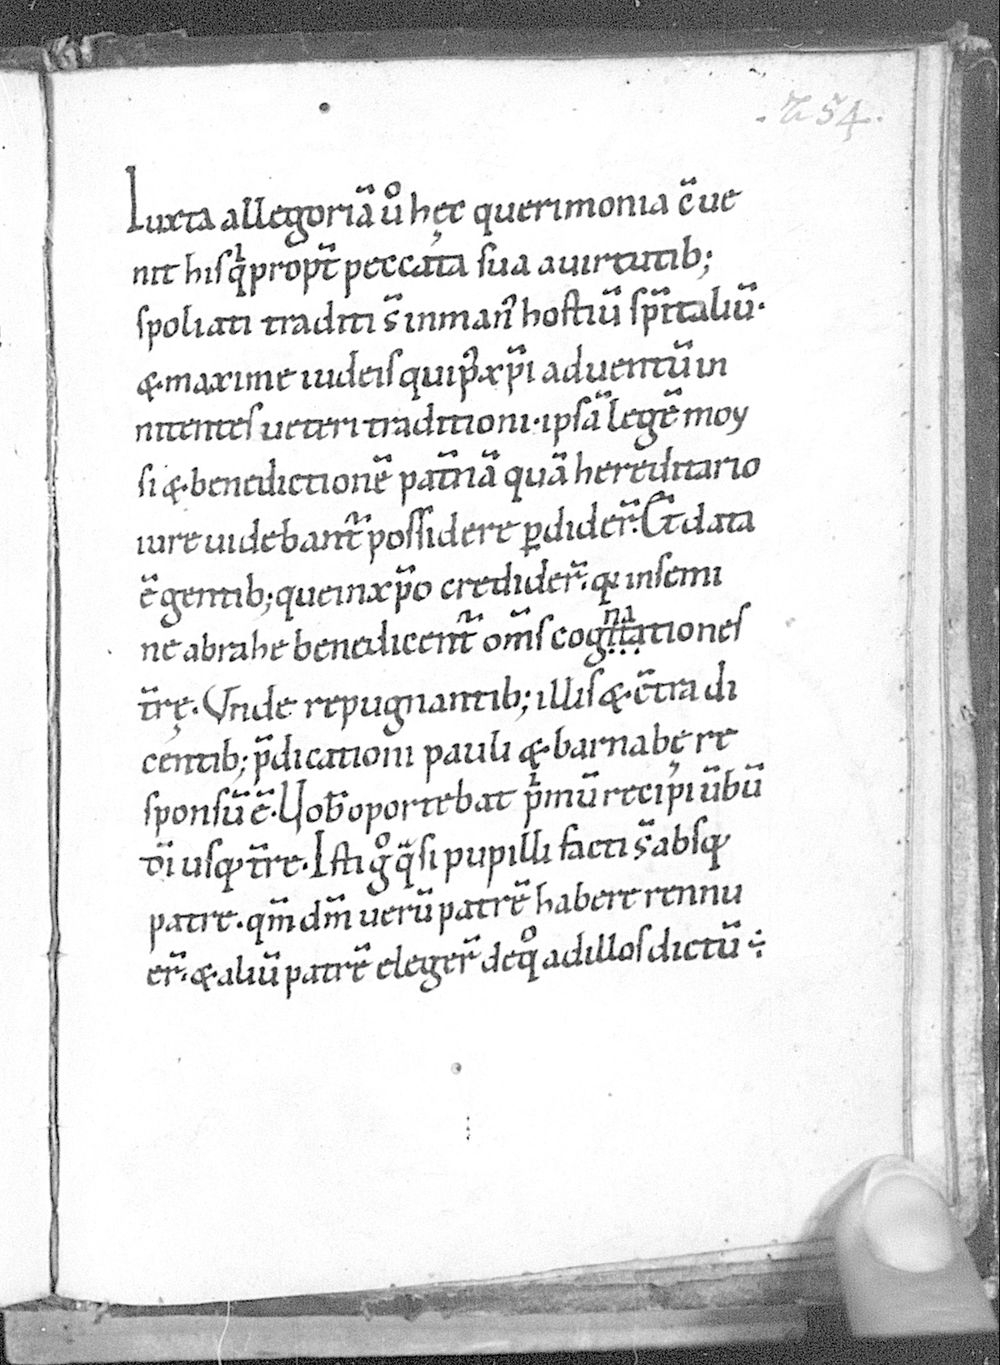 .254.
Iuxta allegoriā ủo hęc querimonia c̄ue
nit his qͥ propt̄ peccata sua a uirtutib;
spoliati traditi s̄ in man᷒ hostiū sp̄italiū.
& maxime iudeis qui p᷒ xp̄i aduentū in
nitentes ueteri traditioni. ipsā legē moy
si & benedictionē pat̄nā quā hereditario
iure uidebant᷑ possidere ꝑdider̄. Et̄ data
ē gentib; que in xp̄o credider̄. q; in semi
ne abrahe benedicent᷑ om̄s cognationes
t̄rę. Vnde repugnantib; illis & c̄tradi
centib; p̄dicationi pauli & barnabę re
sponsū ē. Uob̄ oportebat pͥmū recipi ūbū
dī usq; t̄re. Isti gͦ q̄si pupilli facti s̄ absq;
patre. qm̄ dm̄ uerū patrē habere rennu
er̄. & aliū patrē eleger̄ de qͦ ad illos dictū ÷